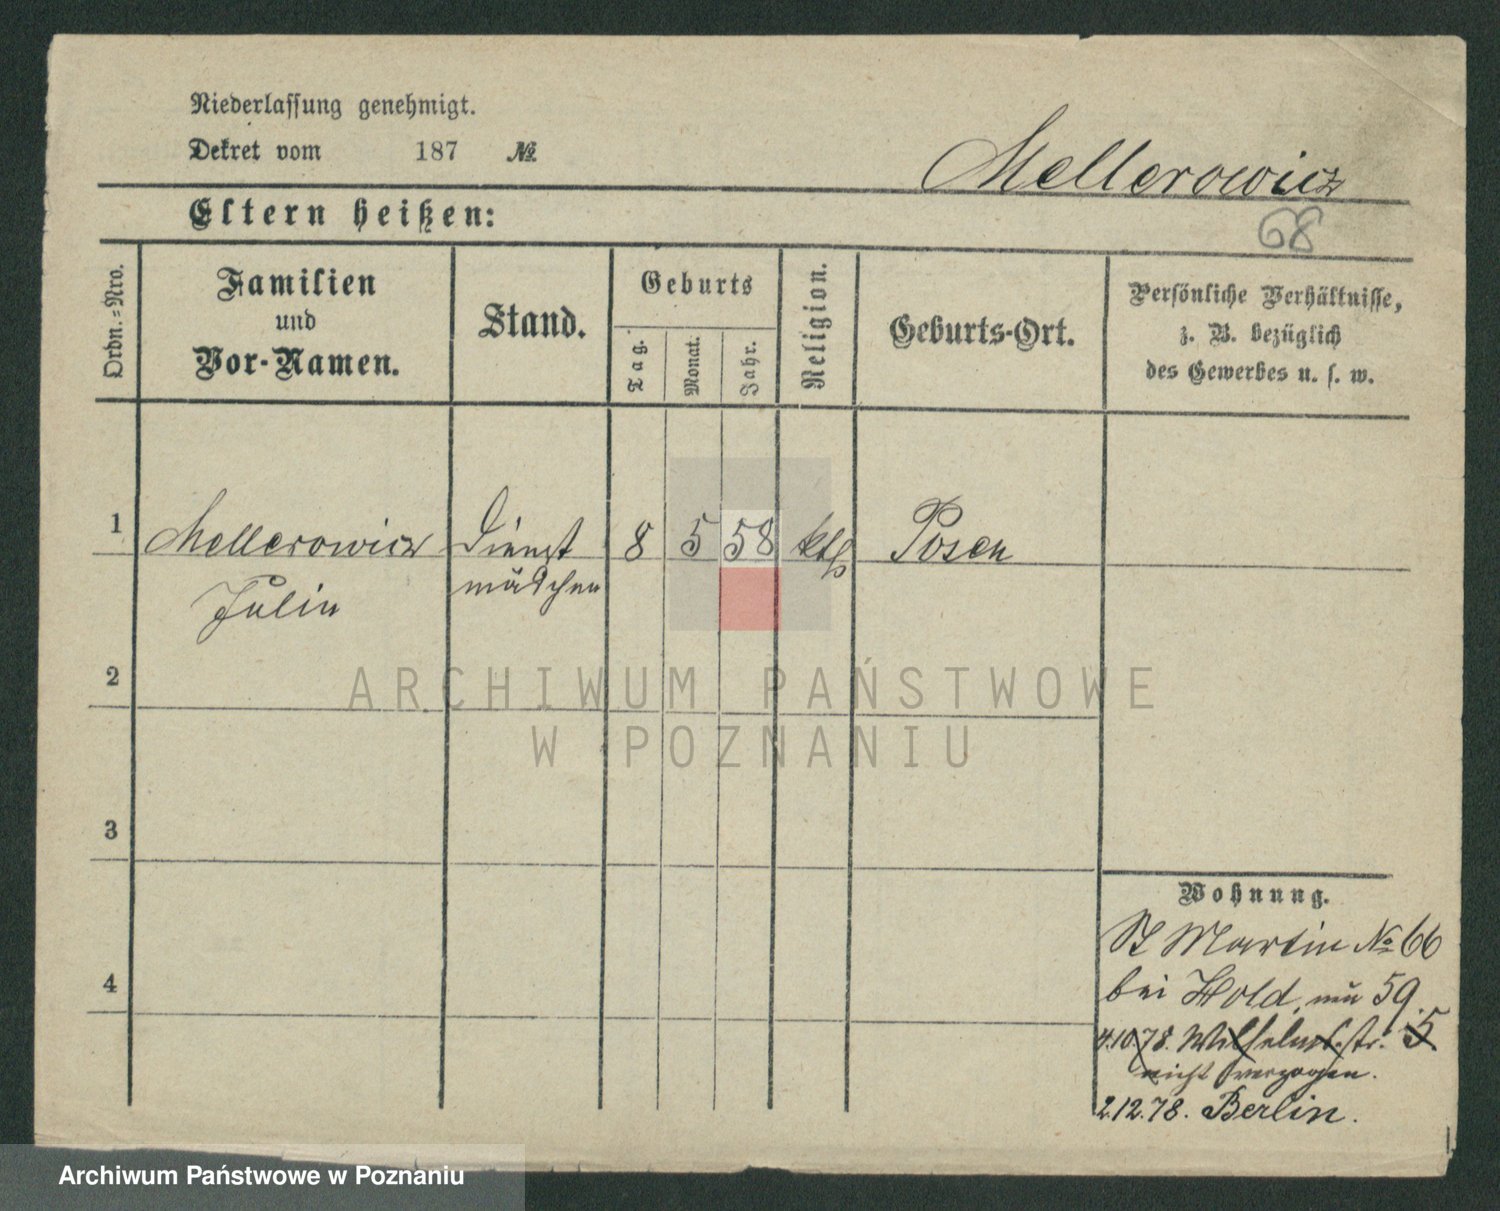 Niederlassung genehmigt.
Dekret vom 187 №
Mellerowicz
68
Eltern heißen:
Ordn.=Nro.
Familien
und
Vor-Namen.
Stand.
Geburts
Tag.
Monat.
Jahr.
Religion.
Geburts-Ort.
Persönliche Verhältnisse,
z. B. bezüglich
des Gewerbes u. s. w.
1 Mellerowicz Dienst 8 5 58 kth Posen
Julia mädchen
2
ARCHIWUM PAŃSTWOWE
W POZNANIU
3
Wohnung.
St Martin № 66
bei Hold, nun 59.
4
4.10.78. Wilhelmstr. 5
nicht verzogen.
2.12.78. Berlin.
Archiwum Państwowe w Poznaniu